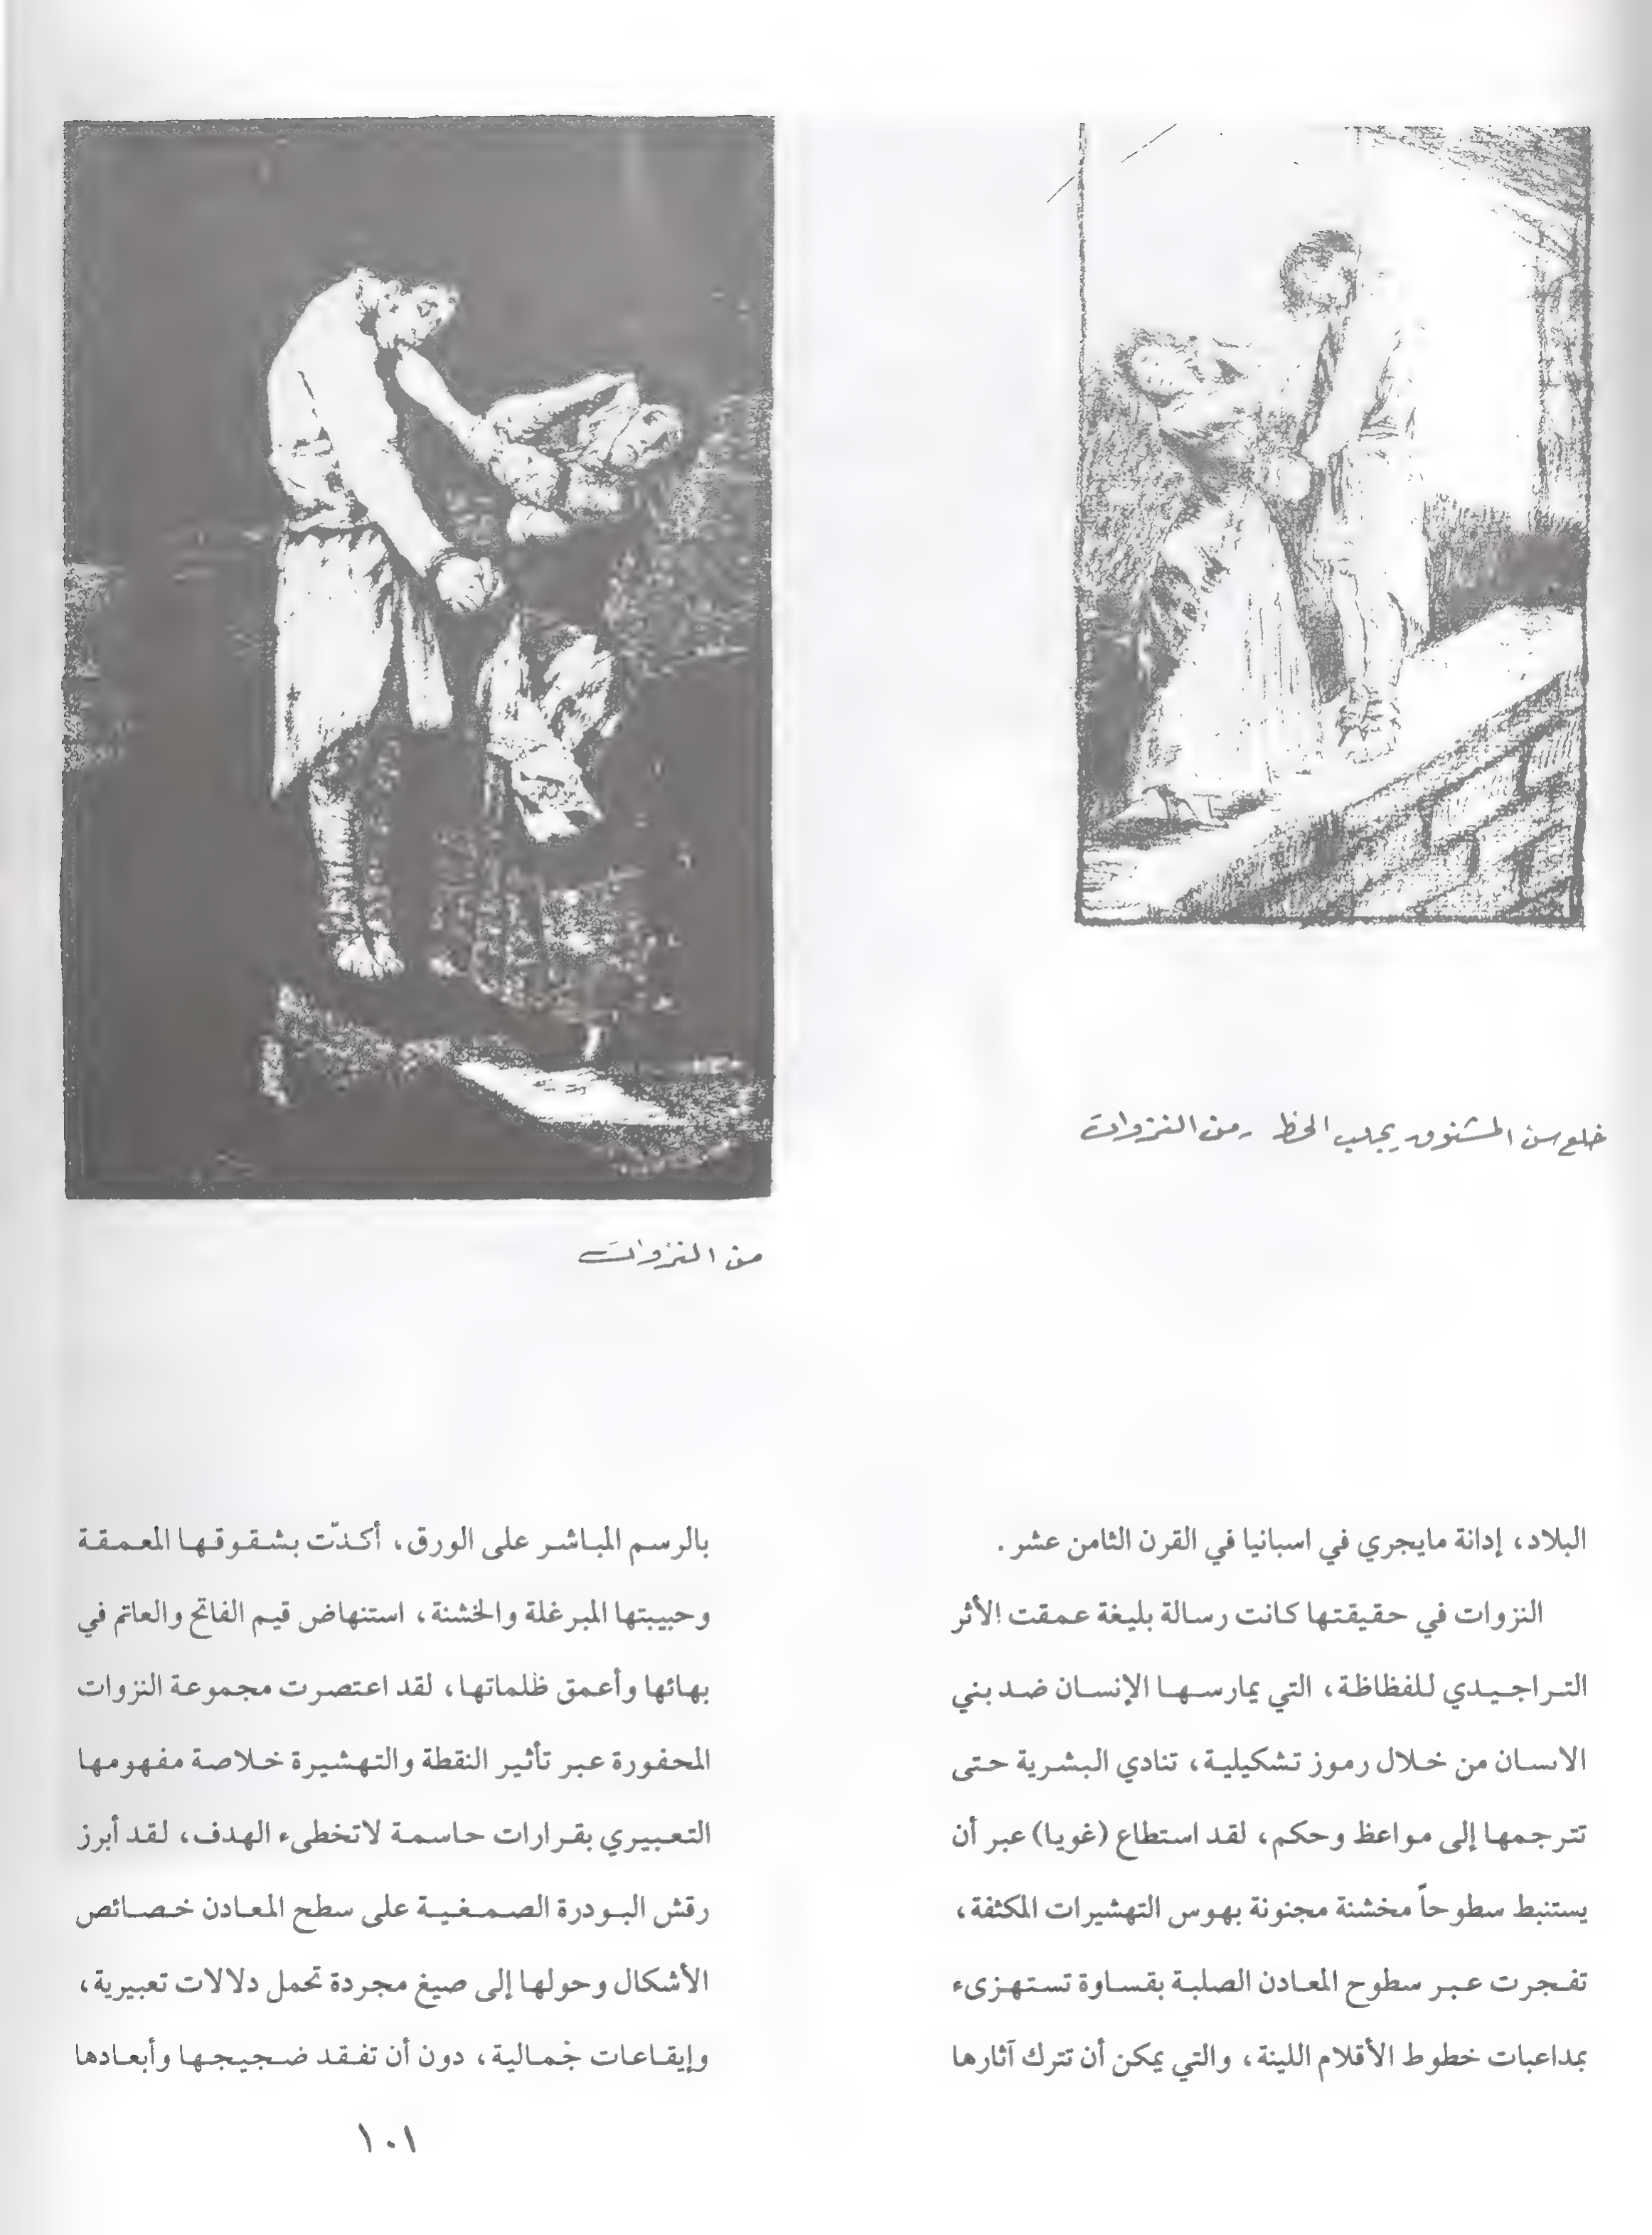 خلع سن المشنوق يجلب الحظ - من النزوات
من النزوات
البلاد، إدانة مايجري في اسبانيا في القرن الثامن عشر.
النزوات في حقيقتها كانت رسالة بليغة عمقت الأثر
التراجيدي للفظاظة، التي يمارسها الإنسان ضد بني
الانسان من خلال رموز تشكيلية، تنادي البشرية حتى
تترجمها إلى مواعظ وحكم، لقد استطاع (غويا) عبر أن
يستنبط سطوحاً مخشنة مجنونة بهوس التهشيرات المكثفة،
تفجرت عبر سطوح المعادن الصلبة بقساوة تستهزىء
بمداعبات خطوط الأقلام اللينة، والتي يمكن أن تترك آثارها
بالرسم المباشر على الورق، أكدّت بشقوقها المعمقة
وحبيبتها المبرغلة والخشنة، استنهاض قيم الفاتح والعاتم في
بهائها وأعمق ظلماتها، لقد اعتصرت مجموعة النزوات
المحفورة عبر تأثير النقطة والتهشيرة خلاصة مفهومها
التعبيري بقرارات حاسمة لاتخطىء الهدف، لقد أبرز
رقش البودرة الصمغية على سطح المعادن خصائص
الأشكال وحولها إلى صيغ مجردة تحمل دلالات تعبيرية،
وإيقاعات جمالية، دون أن تفقد ضجيجها وأبعادها
١٠١